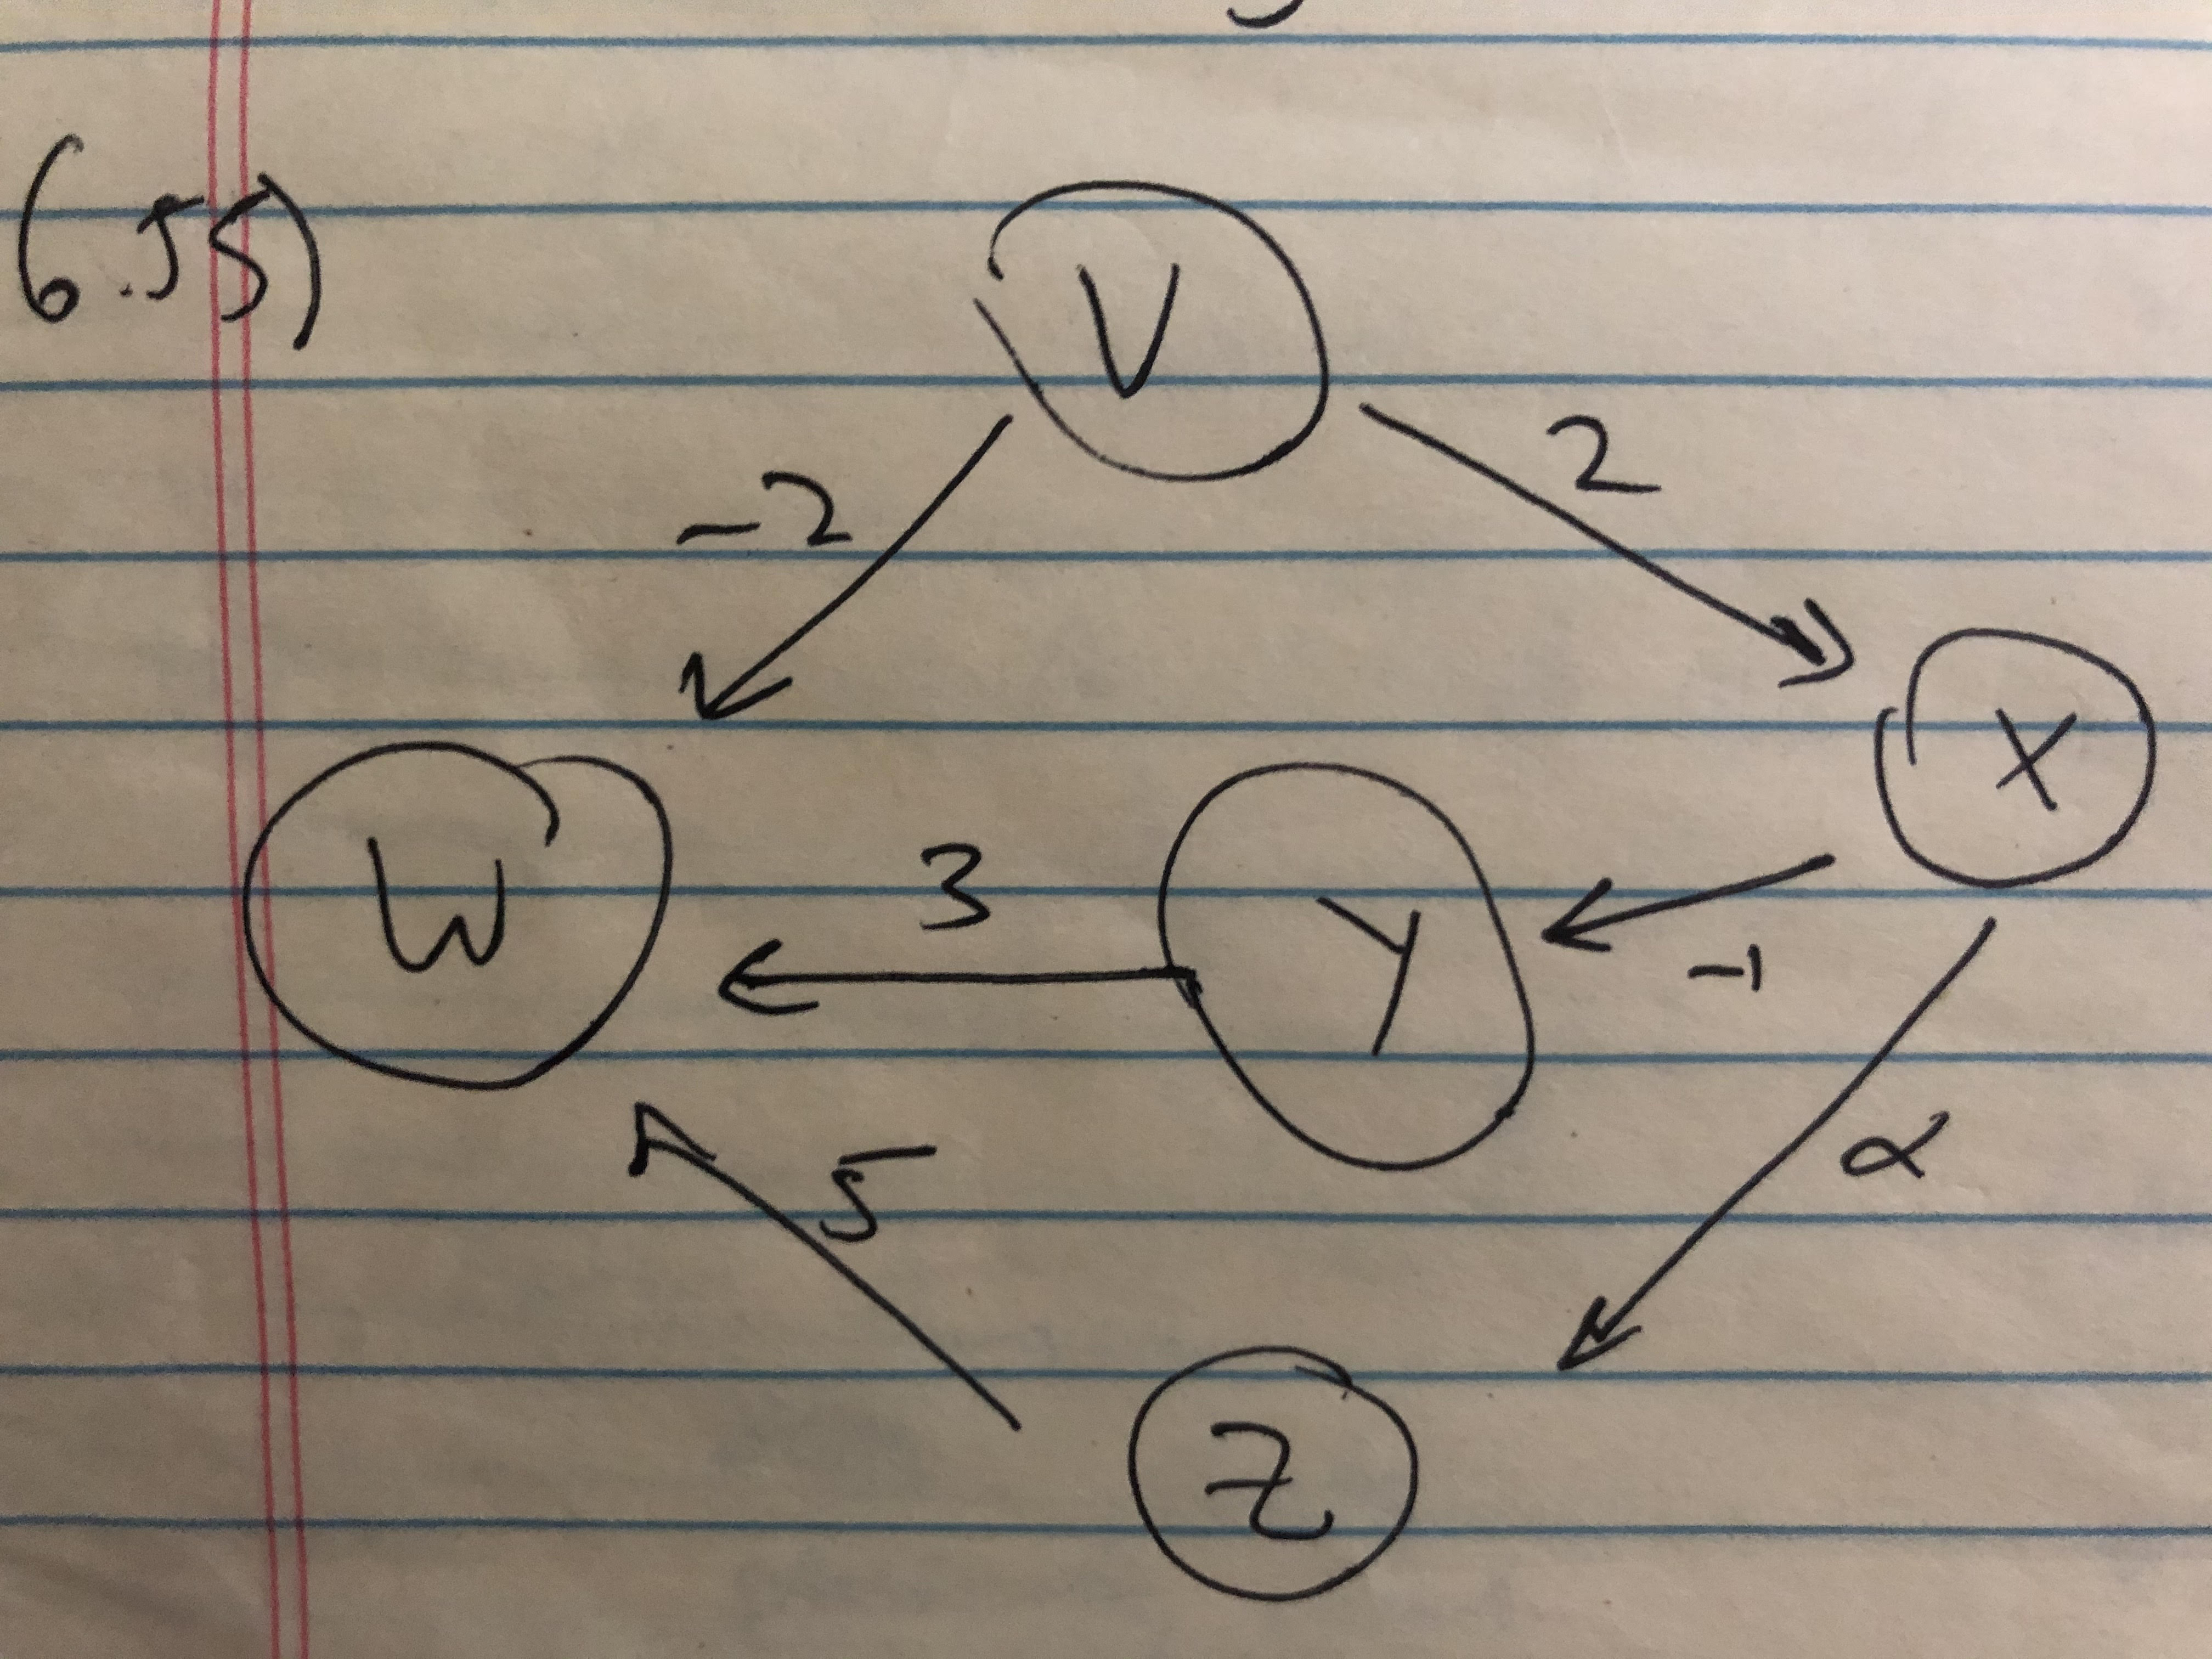 6.55)
V
-2
2
X
W
3
Y
-1
5
α
Z